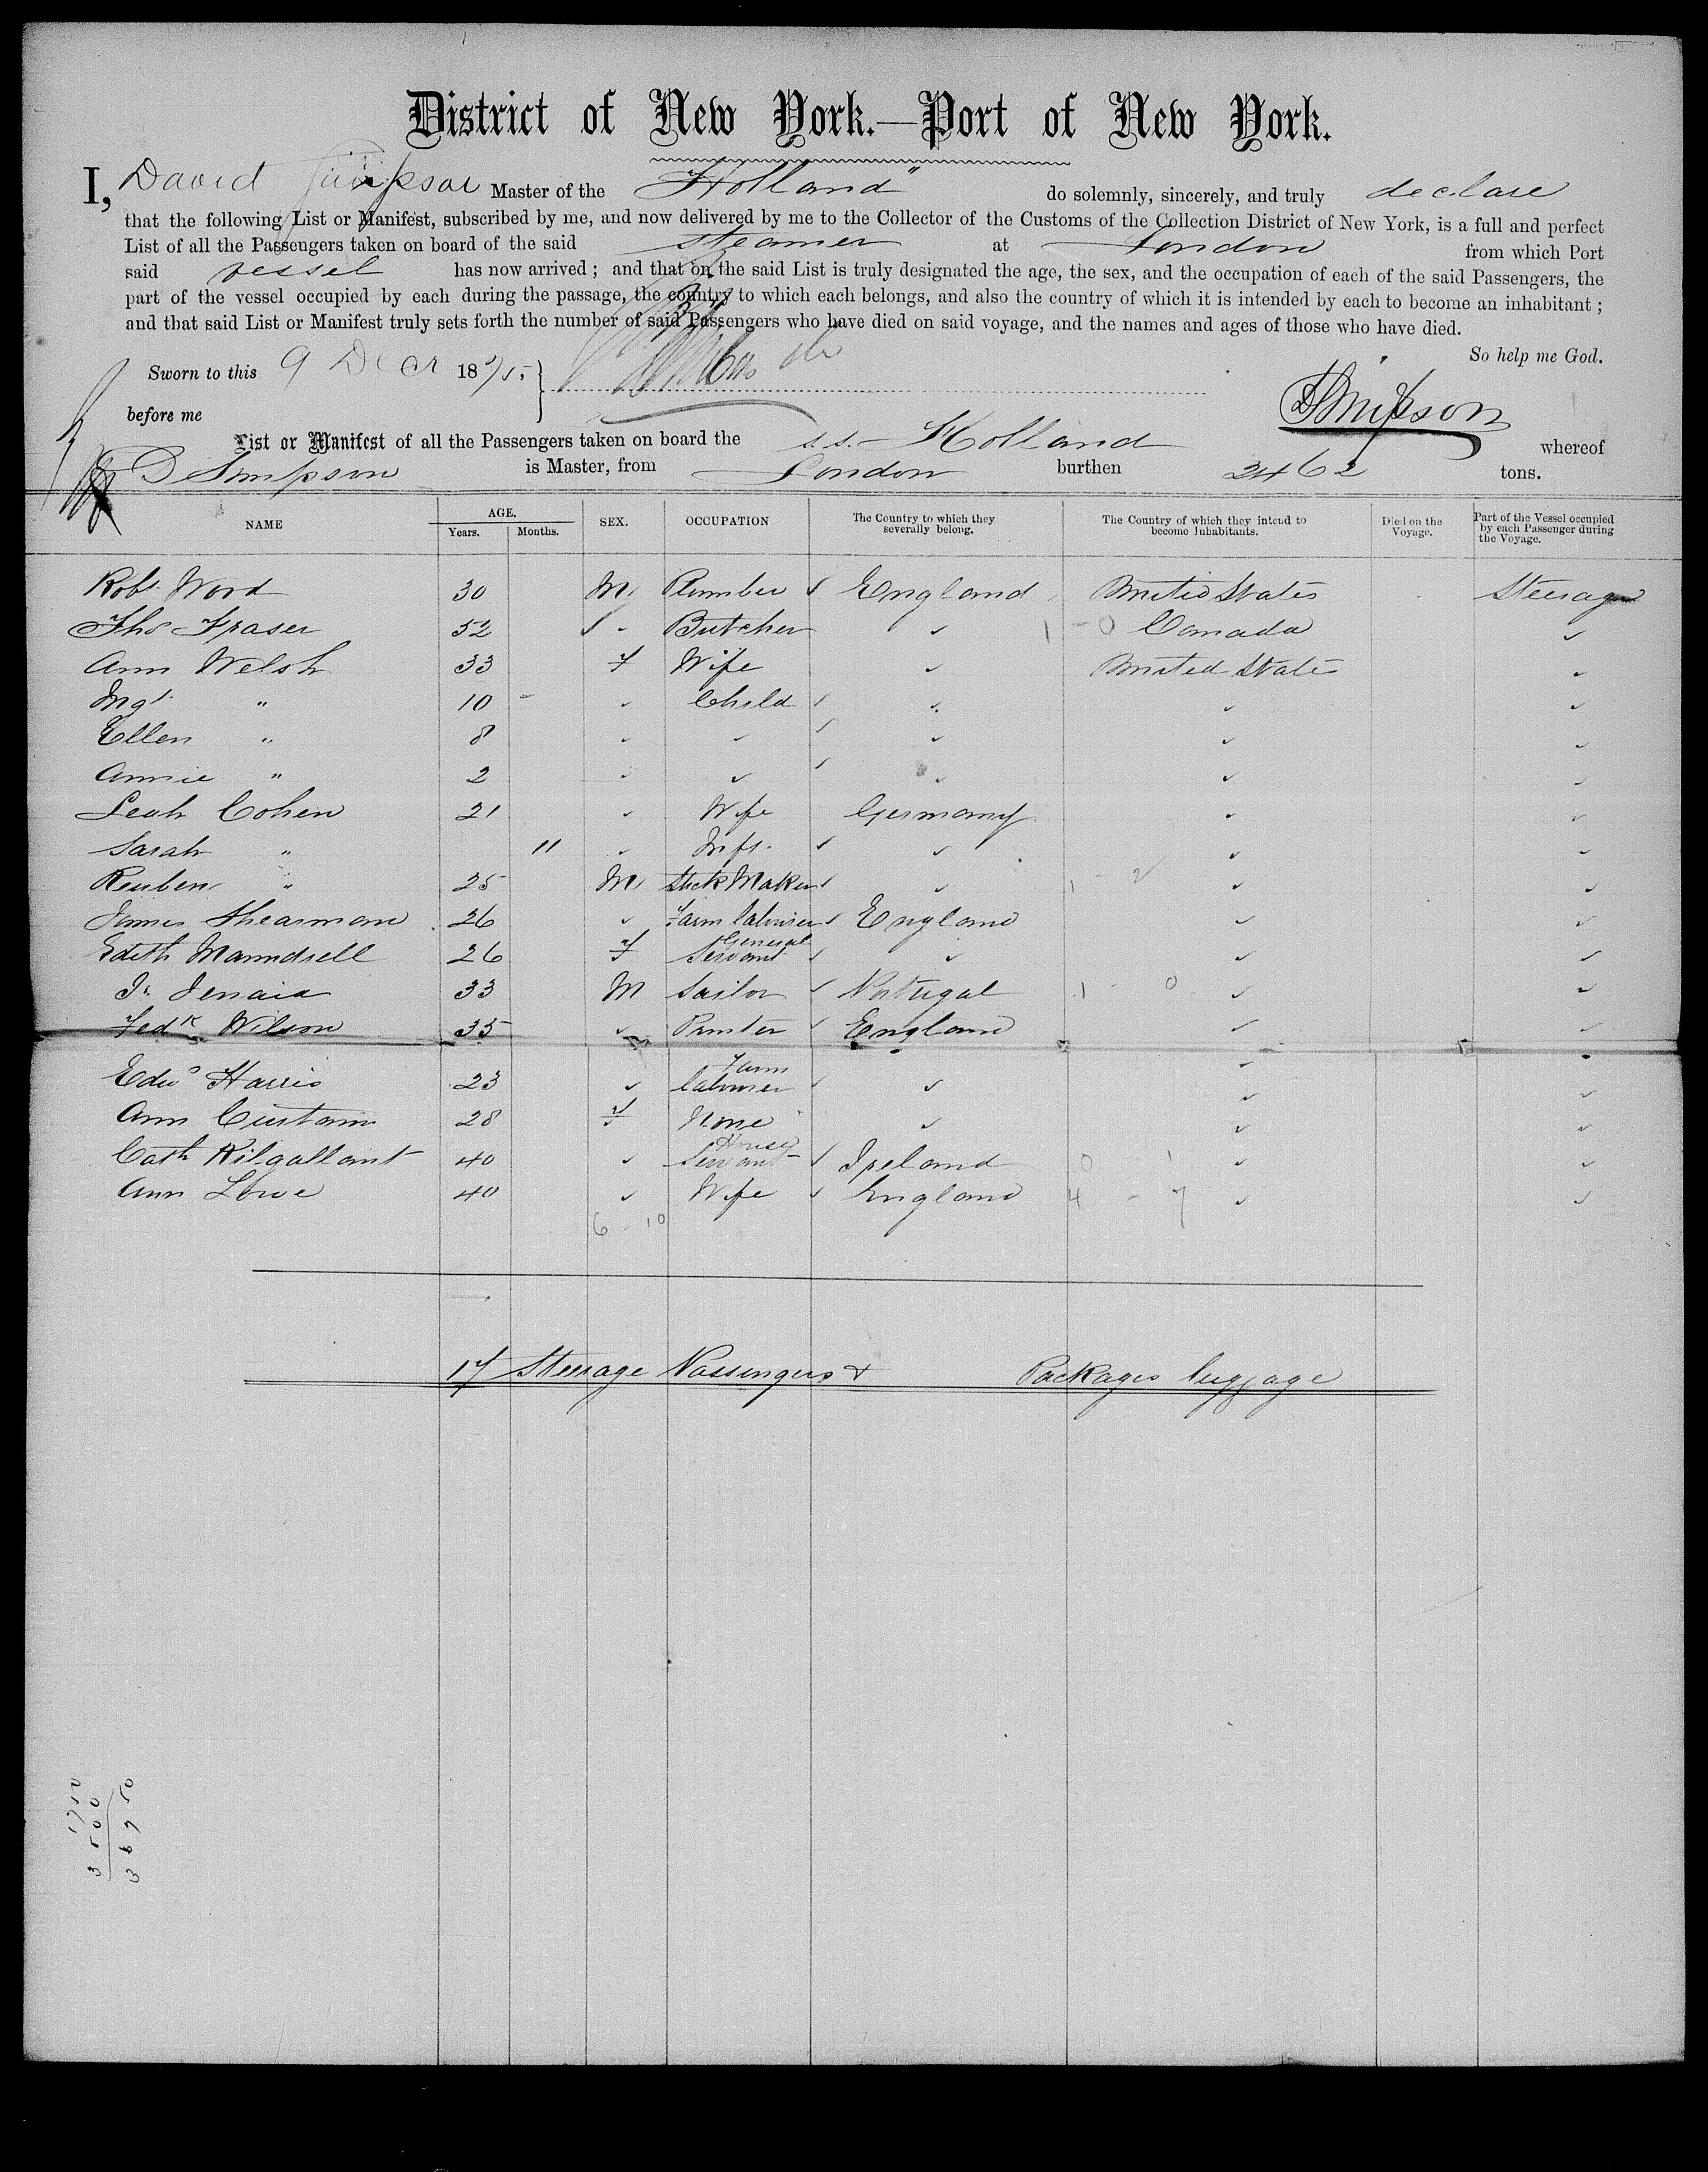 District of New York.—Port of New York.
I, David Simpson Master of the "Holland" do solemnly, sincerely, and truly declare
that the following List or Manifest, subscribed by me, and now delivered by me to the Collector of the Customs of the Collection District of New York, is a full and perfect
List of all the Passengers taken on board of the said steamer at London from which Port
said vessel has now arrived; and that on the said List is truly designated the age, the sex, and the occupation of each of the said Passengers, the
part of the vessel occupied by each during the passage, the country to which each belongs, and also the country of which it is intended by each to become an inhabitant;
and that said List or Manifest truly sets forth the number of said Passengers who have died on said voyage, and the names and ages of those who have died.
So help me God.
Sworn to this 9 Decr 1875
DSimpson
before me
List or Manifest of all the Passengers taken on board the s.s. Holland whereof
D Simpson is Master, from London burthen 2462 tons.
NAME AGE. Years. Months. SEX. OCCUPATION The Country to which they severally belong. The Country of which they intend to become Inhabitants. Died on the Voyage. Part of the Vessel occupied by each Passenger during the Voyage.
Robt. Word 30 M Plumber ✓ England United States Steerage
Thos Fraser 52 ✓ " Butcher ✓ 1 - 0 Canada ✓
Ann Welsh 33 F Wife ✓ United States ✓
Mgt. " 10 - ✓ Child ✓ ✓ ✓ ✓
Ellen " 8 ✓ ✓ ✓ ✓ ✓ ✓
Annie " 2 ✓ ✓ ✓ ✓ ✓ ✓
Leah Cohen 21 ✓ Wife Germany ✓ ✓
Sarah " 11 ✓ Inft. ✓ ✓ ✓ ✓
Reuben " 25 M Stick Maker ✓ ✓ 1 - 2 ✓ ✓
James Shearman 26 ✓ Farm labourer ✓ England ✓ ✓
Edith Manndrell 26 F General Servant ✓ ✓ ✓ ✓
33 M Sailor ✓ Portugal 1 - 0 ✓ ✓
Fedk Wilson 35 ✓ Printer ✓ England ✓ ✓
Edwd Harris 23 ✓ Farm labourer ✓ ✓ ✓ ✓
Ann Curtain 28 F None ✓ ✓ ✓
Cath Kilgallant 40 ✓ House Servant ✓ Ireland 0 1 ✓ ✓
Ann Lowe 40 ✓ Wife ✓ England 4 - 7 ✓ ✓
6 - 10
17 Steerage Passengers & Packages luggage